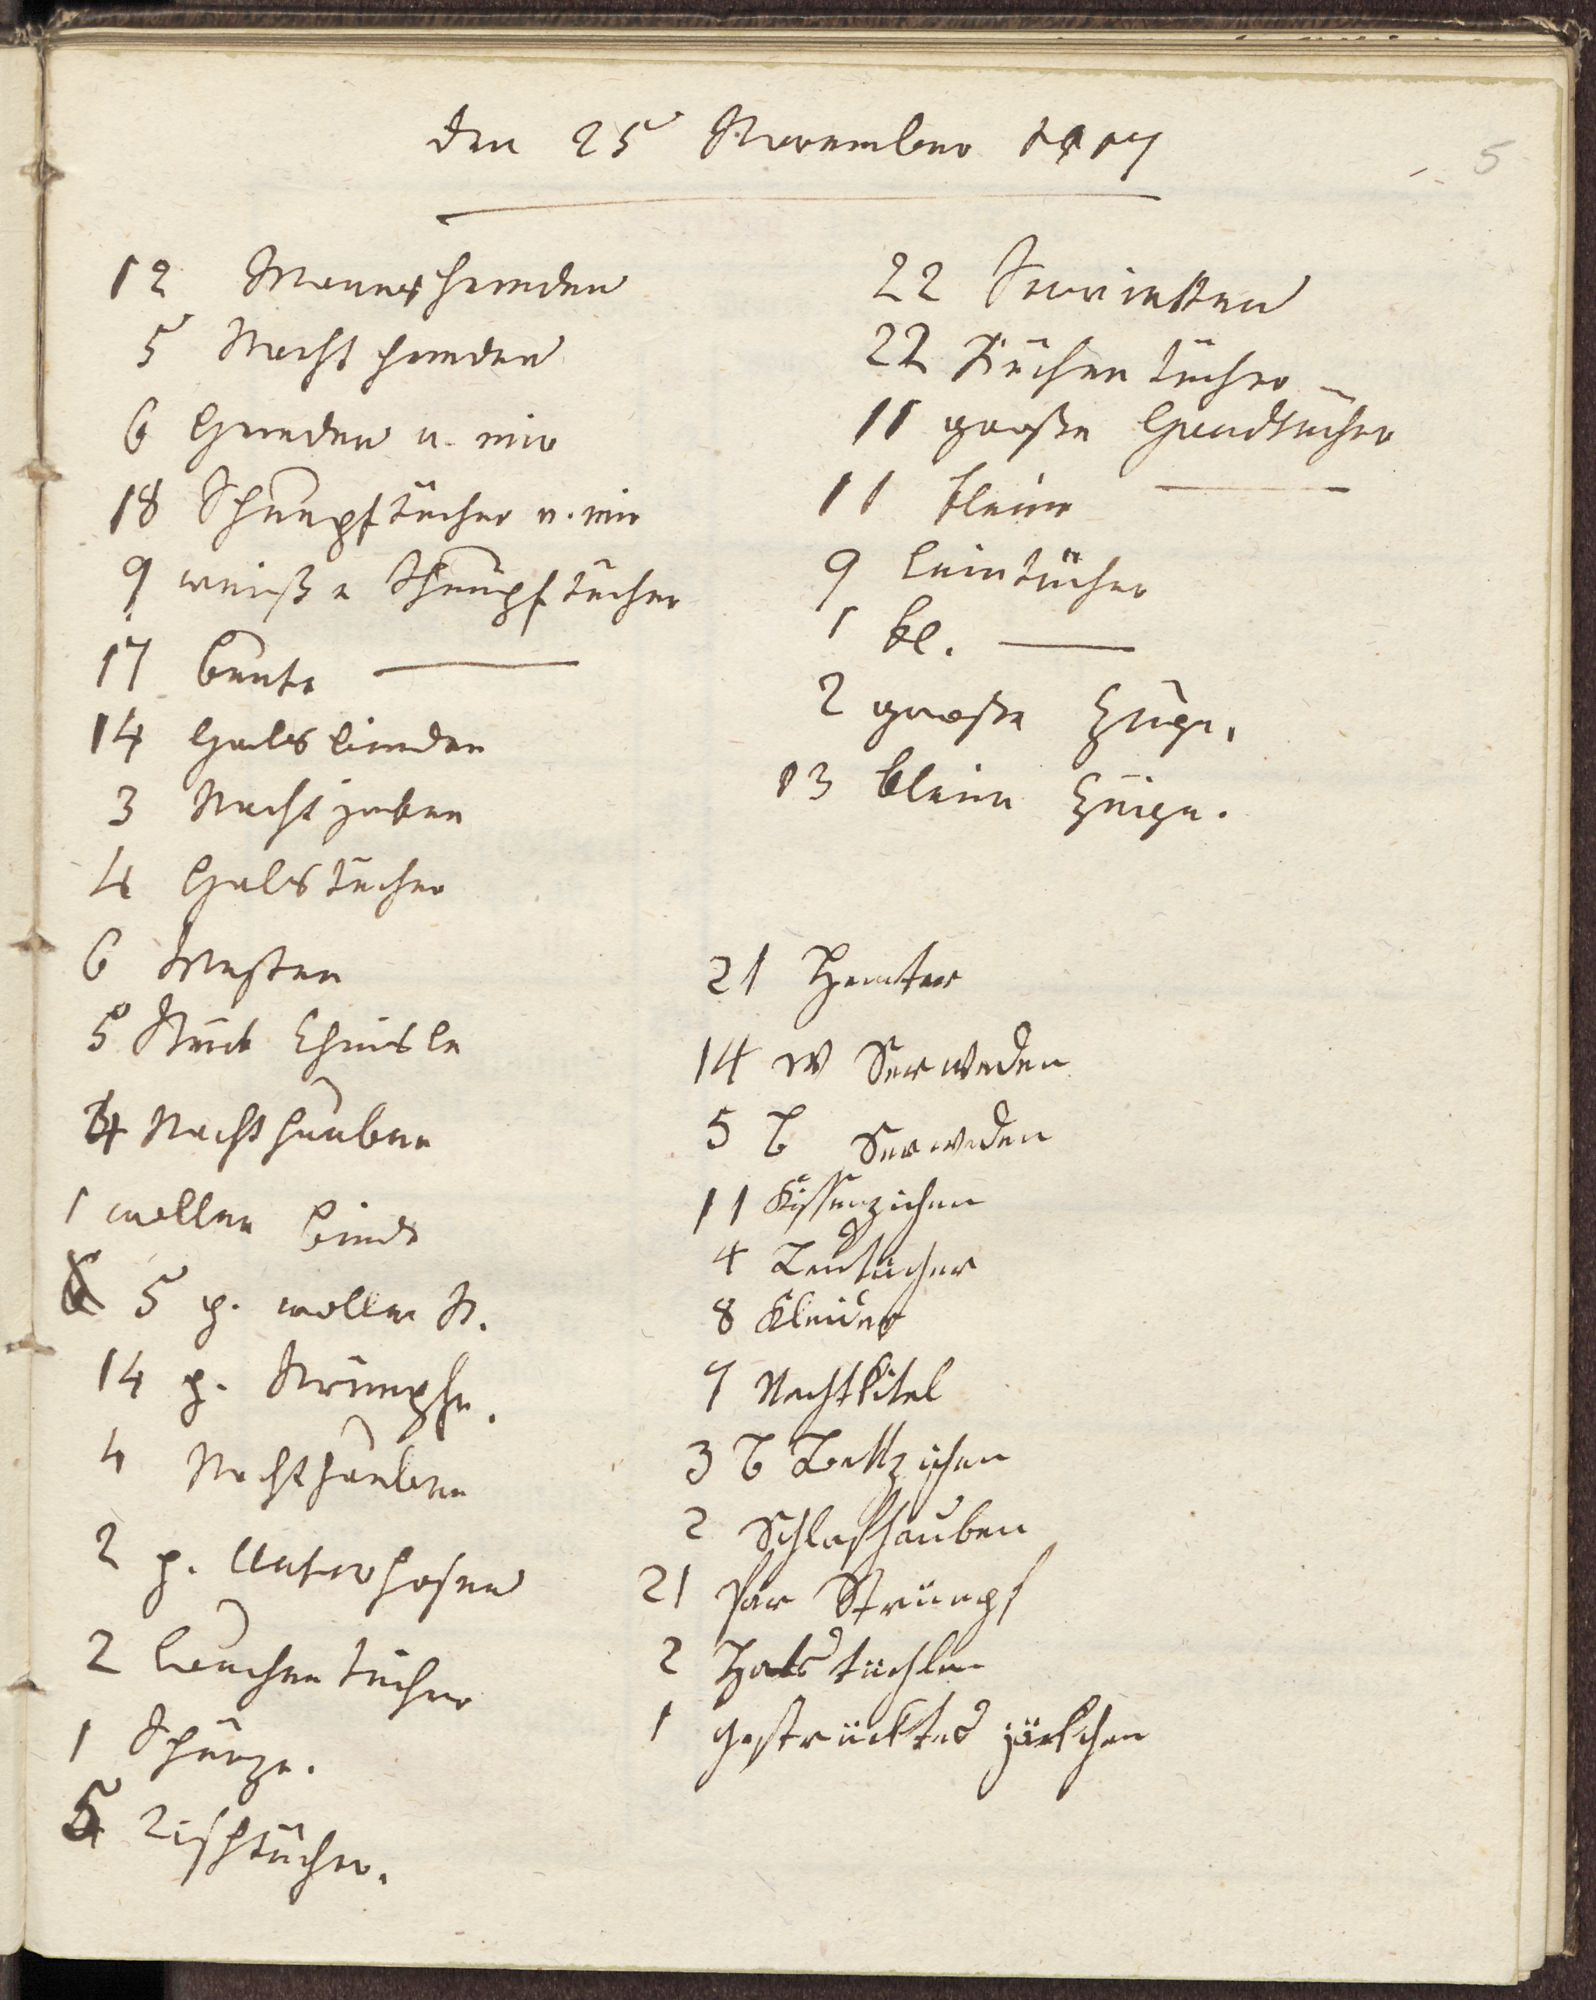 den 25 November 1817
5
12 Mannshemden
5 Nachthemden
6 Hemden v. mir
18 Schnupftücher v. mir
9 weiße Schnupftücher
17 bunte —
14 Halsbinden
3 Nachtjacken
4 Halstücher
6 Westen
5 Stück Chmisle
4 Nachthauben
1 wollen binde
5 p. wollen St.
14 p. Strümpfe.
4 Nachthauben
2 p. Unterhosen
2 tücher
1 Schürze.
5 Tischtücher.
22 Servietten
22 Küchentücher
11 große Handtücher
11 kleine —
9 Leintücher
1 kl. —
2 große Züge.
13 kleine Züge.
21 Hemter
14 W Serweden
5 B Serweden
11 Kissenzichen
4 Leutücher
8 Kleider
7 Nachtkitel
3 B Bettzichen
2 Schlafhauben
21 Par Strümpf
2 Halstüchlen
1 gestrücktes jäckchen